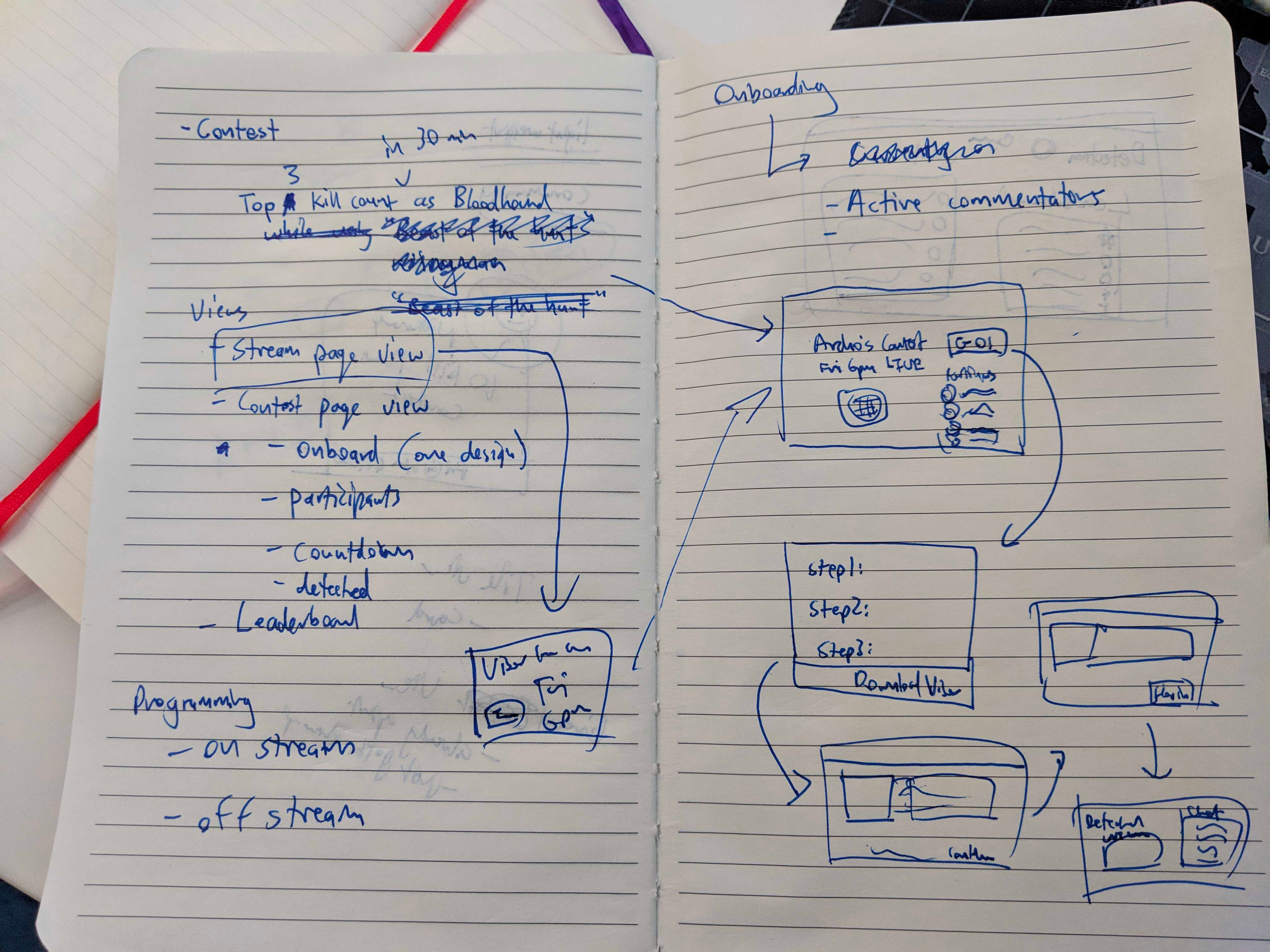 - Contest
in 30 min
3
Top kill count as Bloodhound
while "Beast of the hunt"
"Beast of the hunt"
Views
- Stream page view
- Contest page view
- Onboard (one design)
- participants
- Countdown
- detected
- Leaderboard
Fri
6pm
Programming
- on stream
- off stream
Onboarding
- Active commentators
-
Contest GO!
Fri 6pm LIVE
Step1:
Step2:
Step3:
Download
Chat